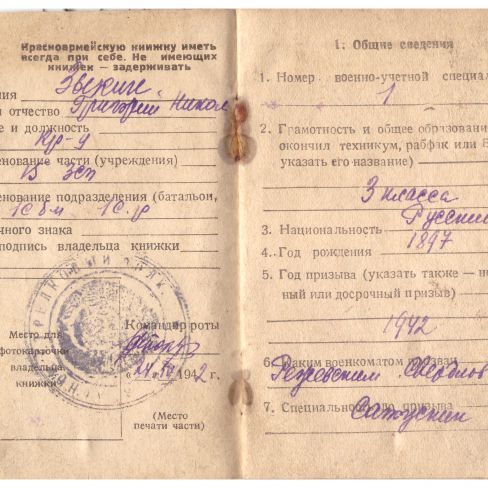 Красноармейскую книжку иметь
всегда при себе. Не имеющих
книжек — задерживать
ния Звекин
и отчество Григорий Никол
е и должность
Кр-ц
енование части (учреждения)
13 зсп
енование подразделения (батальон,
1 с бм 1 с. р
чного знака
подпись владельца книжки
Командир роты
Место для
фотокарточки
владельца
книжки
194 2 г.
(Место
печати части)
1. Общие сведения
1. Номер военно-учетной специал
1
2. Грамотность и общее образован
окончил техникум, рабфак или В
указать его название)
3 класса
3. Национальность Русский
4. Год рождения 1897
5. Год призыва (указать также — но
ный или досрочный призыв)
1942
6. Каким военкоматом призван
Режевским Свердлов
7. Специальность до призыва
Сапожник